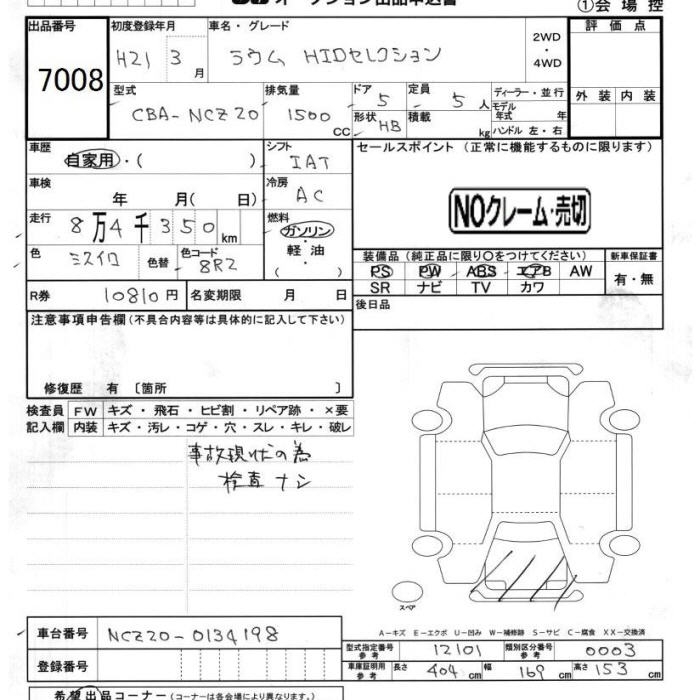 オークション出品申込書
①会場控
出品番号
7008
初度登録年月
H21 3 月
車名・グレード
ラウム HIDセレクション
2WD
・
4WD
評価点
外装 内装
型式
CBA-NCZ20
排気量
1500 CC
ドア
5
形状
HB
定員
5 人
積載
kg
ディーラー・並行
モデル年式 年
ハンドル 左・右
車歴
自家用・( )
シフト
IAT
セールスポイント (正常に機能するものに限ります)
NOクレーム・売切
車検
年 月( 日)
冷房
AC
走行
8万4千350km
燃料
ガソリン
・
軽・油
( )
色
ミズイロ
色替
色コード
8R2
装備品 (純正品に限り〇をつけてください)
PS PW ABS エアB AW
SR ナビ TV カワ
新車保証書
有・無
R券 10810円
名変期限 月 日
後日品
注意事項申告欄(不具合内容等は具体的に記入して下さい)
修復歴 有 〔箇所 〕
検査員
記入欄
FW キズ・飛石・ヒビ割・リペア跡・×要
内装 キズ・汚レ・コゲ・穴・スレ・キレ・破レ
事故現状の為
検査ナシ
スペア
A-キズ E-エクボ U-凹み W-補修跡 S-サビ C-腐食 XX-交換済
車台番号 NCZ20-0134198
登録番号
型式指定番号
参考
12101
類別区分番号
参考
0003
車庫証明用
参考
長さ 404 cm 幅 169 cm 高さ 153 cm
希望出品コーナー (コーナーは各会場により異なります。)